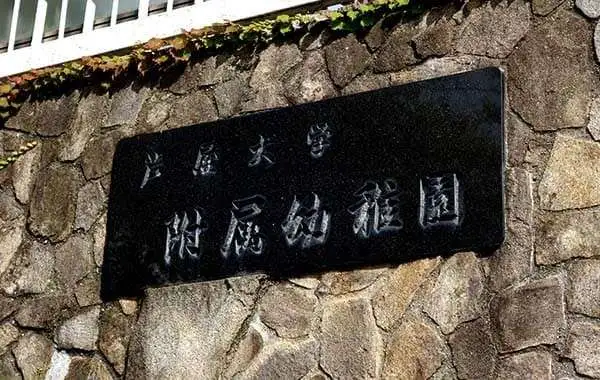 芦屋大学
附属幼稚園